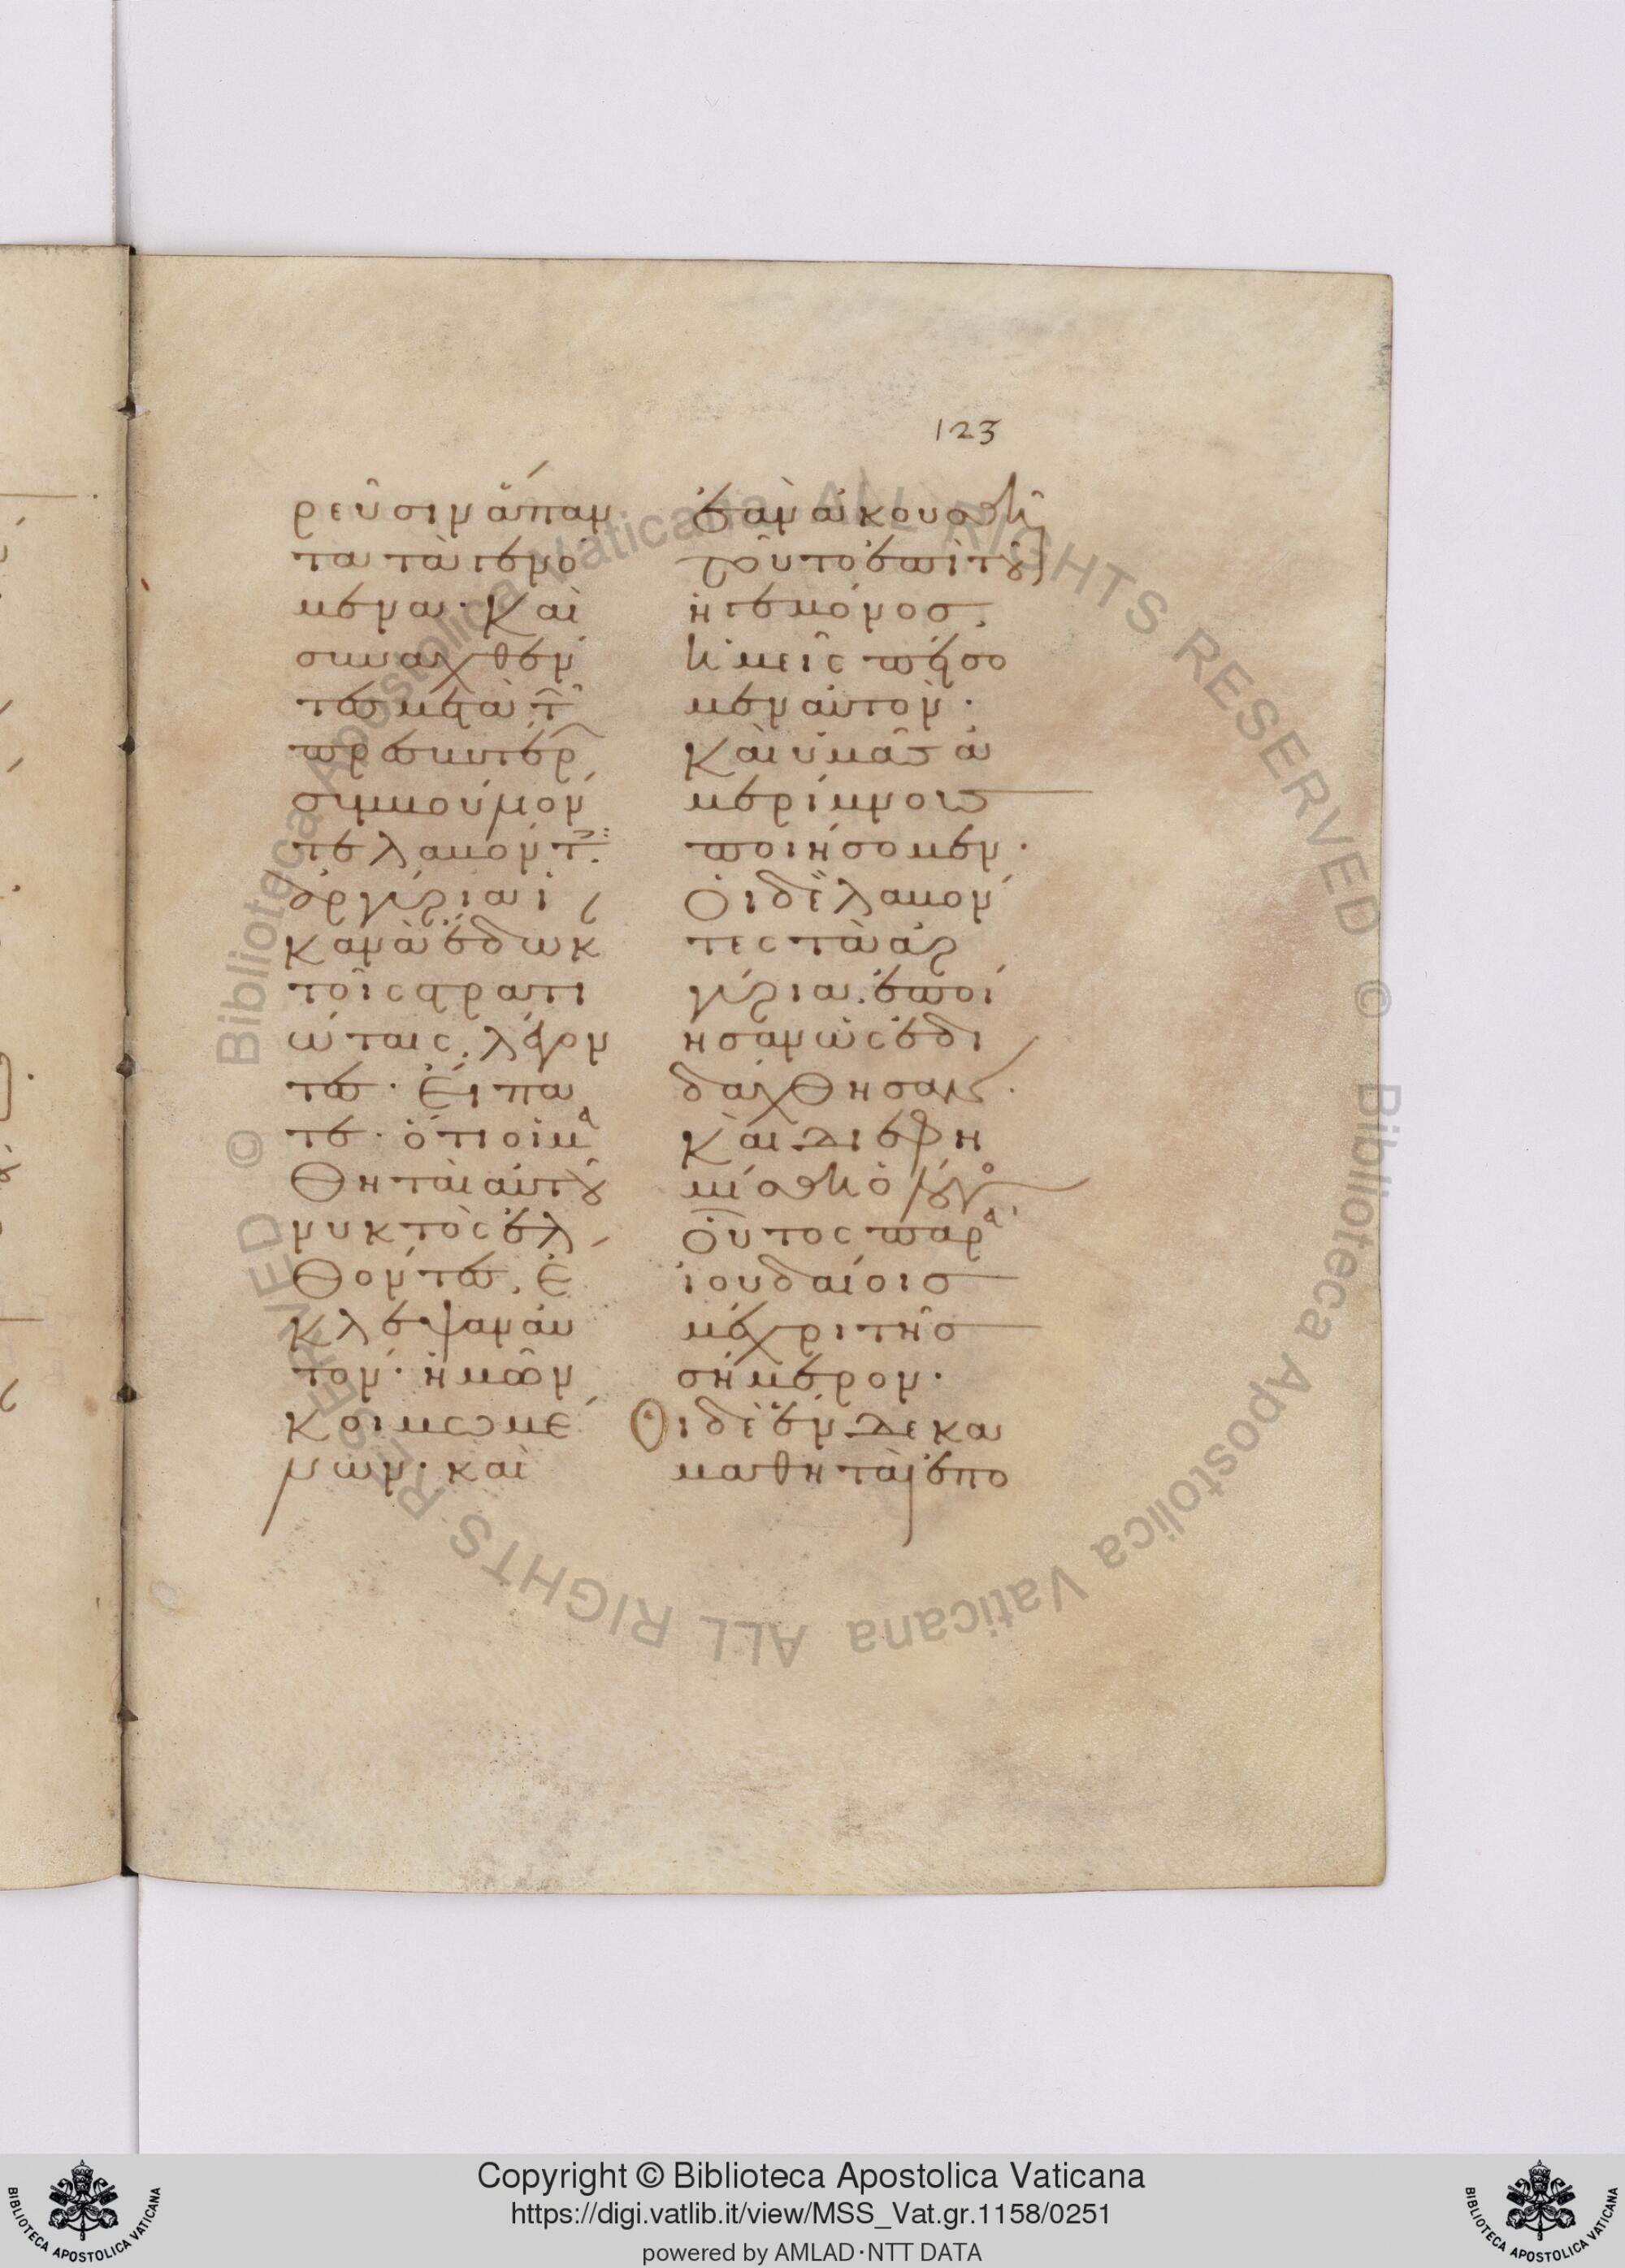 123
ρεῦσιν ἅπαν
τα τὰ γενό
μενα· Καὶ
συναχθέν
τες μετὰ τῶ
πρεσβυτέρ
συμβούλιον
τε λαβόντ
ἀργύρια ἱ
κανὰ ἔδωκ
τοῖς στρατι
ώταις. λέγον
τες· Εἴπα
τε· ὅτι οἱ μα
Θηταὶ αὐτοῦ
νυκτὸς ἐλ
Θόντες. ἔ
κλεψαν αὐ
τόν· ἡμῶν
κοιμωμέ
νων· καὶ
ἐὰν ἀκουσθῆ
τοῦτο ἐπὶ τοῦ
ἡγεμόνος.
ἡμεῖς πείσο
μεν αὐτὸν·
Καὶ ὑμᾶς ἀ
μερίμνους
ποιήσομεν·
Οἱ δὲ λαβόν
τες τὰ ἀρ
γύρια. ἐποί
ησαν ὡς ἐδι
δάχθησαν.
Καὶ διεφη
μίσθη ὁ λόγος
οὗτος παρὰ
ἰουδαίοις
μέχρι τῆς
σήμερον.
Οἱ δὲ ἕνδεκα
μαθηταὶ ἐπο
Copyright © Biblioteca Apostolica Vaticana
https://digi.vatlib.it/view/MSS_Vat.gr.1158/0251
powered by AMLAD·NTT DATA
BIBLIOTECA APOSTOLICA VATICANA
BIBLIOTECA APOSTOLICA VATICANA
© Biblioteca Apostolica Vaticana ALL RIGHTS RESERVED © Biblioteca Apostolica Vaticana ALL RIGHTS RESERVED